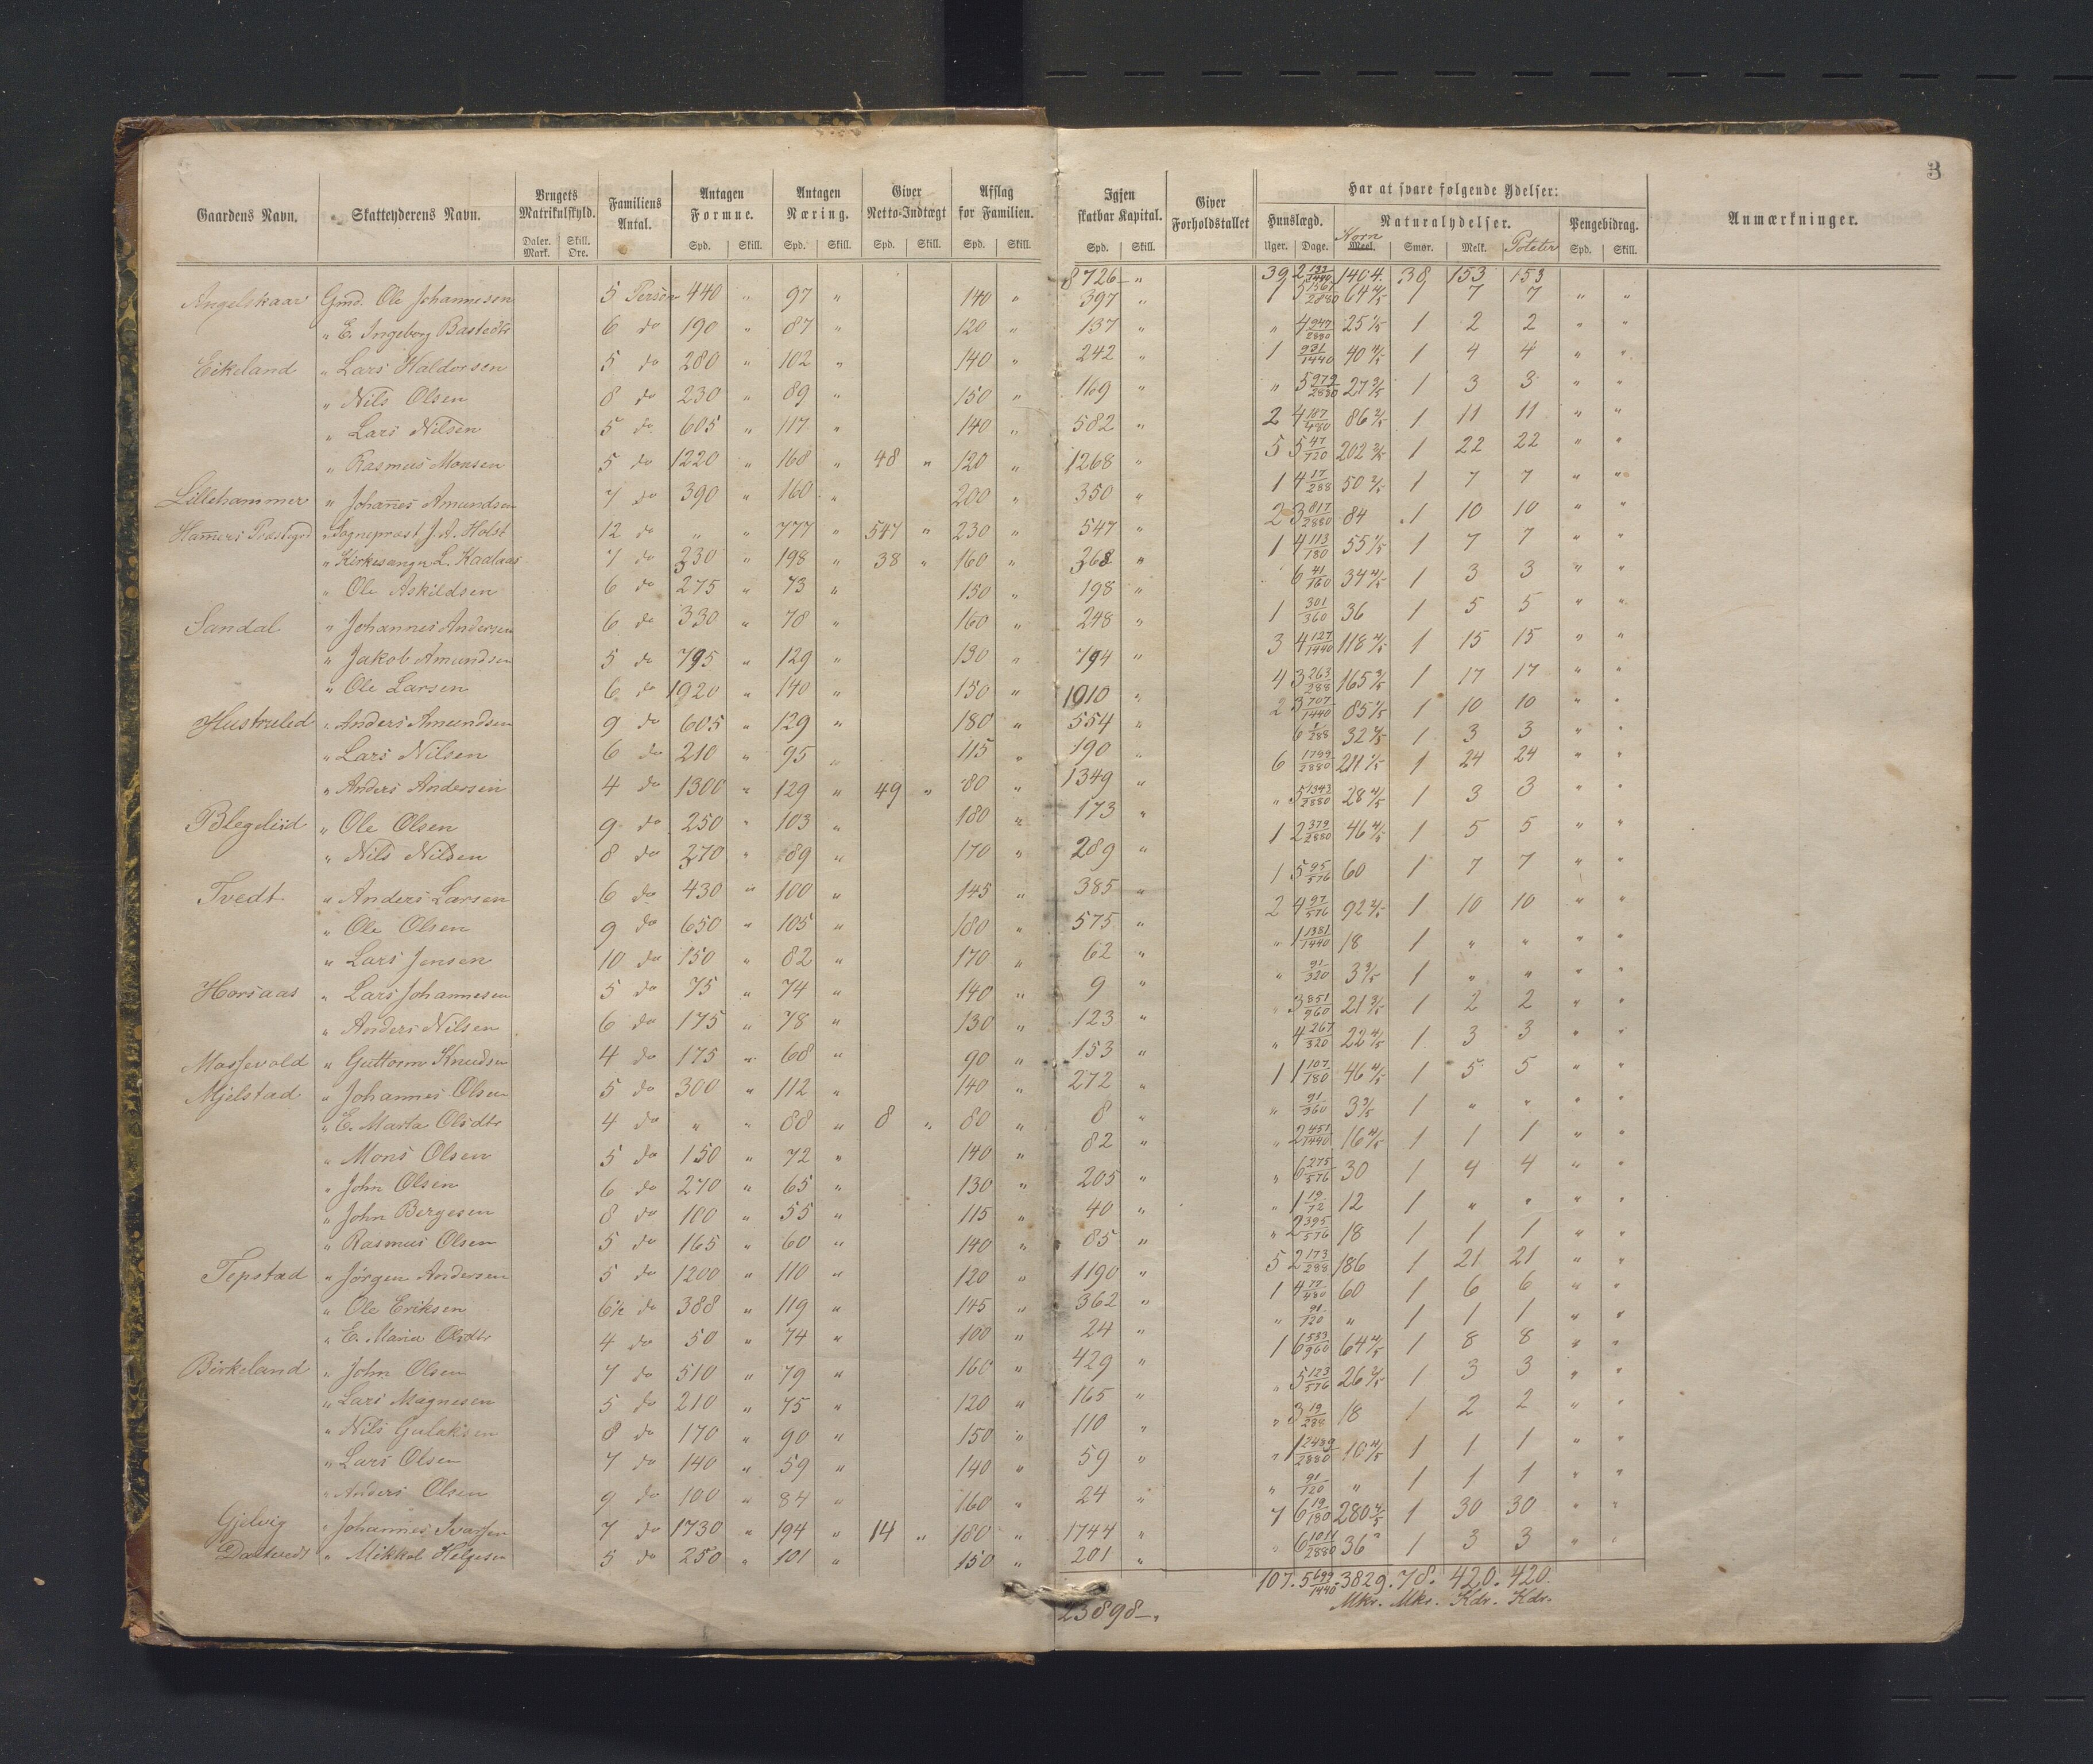 3
Gaardens Navn. Skatteyderens Navn. Brugets Matrikulskyld. Familiens Antal. Antagen Formue. Antagen Næring. Giver Netto-Indtægt Afslag for Familien. Igjen skatbar Kapital. Giver Forholdstallet Har at svare følgende Ydelser: Anmærkninger.
Hunslægd. Naturalydelser. Pengebidrag.
Daler. Mark. Skill. Øre. Spd. Skill. Spd. Skill. Spd. Skill. Spd. Skill. Spd. Skill. Uger. Dage. Korn Meel. Smør. Melk. Poteter Spd. Skill.
8726 — " 39 2 1404. 38 153 153
Angelskaar Gmd. Ole Johannesen 5 Person 440 " 97 " 140 " 397 " 1 5 64 4/5 1 7 7 " "
" E. Ingeborg Bastedtr 6 do 190 " 87 " 120 " 137 " " 4 947/2880 25 1/5 1 2 2 " "
Eikeland " Lars Haldorsen 5 do 280 " 102 " 140 " 242 " 1 931/1440 40 4/5 1 4 4 " "
" Nils Olsen 8 do 230 " 89 " 150 " 169 " " 5 979/2880 27 3/5 1 3 3 " "
" Lars Nilsen 5 do 605 " 117 " 140 " 582 " 2 4 187/480 86 2/5 1 11 11 " "
" Rasmus Monsen 5 do 1220 " 168 " 48 " 120 " 1268 " 5 5 47/720 202 1 22 22 " "
Lillehammer " Johanes Amundsen 7 do 390 " 160 " 200 " 350 " 1 4 17/288 50 2/5 1 7 7 " "
Hamers Prestegrd " Sogneprest J. A. Holst 12 do " " 777 " 547 " 230 " 547 " 2 3 817/2880 84 1 10 10 " "
" Kirkesangr L. Kaalaas 7 do 330 " 198 " 38 " 160 " 368 " 1 4 113/180 55 1/5 1 7 7 " "
" Ole Askildsen 6 do 275 " 73 " 150 " 198 " 6 41/160 34 4/5 1 3 3 " "
Sandal " Johannes Andersen 6 do 330 " 78 " 160 " 248 " 1 301/360 36 1 5 5 " "
" Jakob Amundsen 5 do 795 " 129 " 130 " 794 " 3 4 127/1440 118 4/5 1 15 15 " "
" Ole Larsen 6 do 1920 " 140 " 150 " 1910 " 4 3 263/288 165 3/5 1 17 17 " "
Hustruled " Anders Amundsen 9 do 605 " 129 " 180 " 554 " 2 3 707/1440 85 1/5 1 10 10 " "
" Lars Nilsen 6 do 210 " 95 " 115 " 190 " 6 32 1 3 3 " "
" Anders Andersen 4 do 1300 " 129 " 49 " 80 " 1349 " 6 1799/2880 211 1/5 1 24 24 " "
Blegeliid " Ole Olsen 9 do 250 " 103 " 180 " 173 " " 5 1343/2880 28 4/5 1 3 3 " "
" Nils Nilsen 8 do 370 " 89 " 170 " 289 " 1 2 379/2880 46 4/5 1 5 5 " "
Tvedt " Anders Larsen 6 do 430 " 100 " 145 " 385 " 1 5 95/576 60 1 7 7 " "
" Ole Olsen 9 do 650 " 105 " 180 " 575 " 2 4 97/576 92 1 10 10 " "
" Lars Jensen 10 do 150 " 82 " 170 " 62 " " 1 1381/1440 18 1 " " " "
Horsaas " Lars Johannesen 5 do 75 " 74 " 140 " 9 " " 91/320 3 3/5 1 " " " "
" Anders Nilsen 6 do 175 " 78 " 130 " 123 " " 3 851/960 21 3/5 1 2 2 " "
Mossevold " Guttorm Knudsen 4 do 175 " 68 " 90 " 153 " " 4 267/320 22 4/5 1 3 3 " "
Mjelstad " Johannes Olsen 5 do 300 " 112 " 140 " 272 " 1 1 107/180 46 4/5 1 5 5 " "
" E. Marta Olsdtr 4 do " " 88 " 8 " 80 " 8 " " 91/360 3 3/5 1 " " " "
" Mons Olsen 5 do 150 " 72 " 140 " 82 " " 2 451/1440 16 4/5 1 1 1 " "
" John Olsen 6 do 270 " 65 " 130 " 205 " " 6 275/576 30 1 4 4 " "
" John Bergesen 8 do 100 " 55 " 115 " 40 " " 1 19/72 12 1 " " " "
" Rasmus Olsen 5 do 165 " 60 " 140 " 85 " " 2 395/576 18 1 1 1 " "
Tepstad " Jörgen Andersen 5 do 1200 " 110 " 120 " 1190 " 5 2 173/288 186 1 21 21 " "
" Ole Eriksen 6 1/2 do 388 " 119 " 145 " 362 " 1 4 77/480 60 1 6 6 " "
" E. Maria Olsdtr 4 do 50 " 74 " 100 " 24 " " 91/120 " 1 1 1 " "
Birkeland " John Olsen 7 do 510 " 79 " 160 " 429 " 1 6 553/960 64 4/5 1 8 8 " "
" Lars Magnesen 5 do 210 " 75 " 120 " 165 " " 5 123/576 26 2/5 1 3 3 " "
" Nils Gulaksen 8 do 170 " 90 " 150 " 110 " " 3 19/288 18 1 2 2 " "
" Lars Olsen 7 do 140 " 59 " 140 " 59 " " 1 2489/2880 10 4/5 1 1 1 " "
" Anders Olsen 9 do 100 " 84 " 160 " 24 " " 91/120 " 1 1 1 " "
Gjelvig " Johannes Ivarsen 7 do 1730 " 194 " 14 " 180 " 1744 " 7 6 19/180 280 4/5 1 30 30 " "
" Mikkel Helgesen 5 do 250 " 101 " 150 " 201 " " 6 1011/2880 36 " 1 3 3 " "
23898 — " 107. 5 699/1440. 3829. 78. 420. 420.
Mkr. Mkr. Kdr. Kdr.